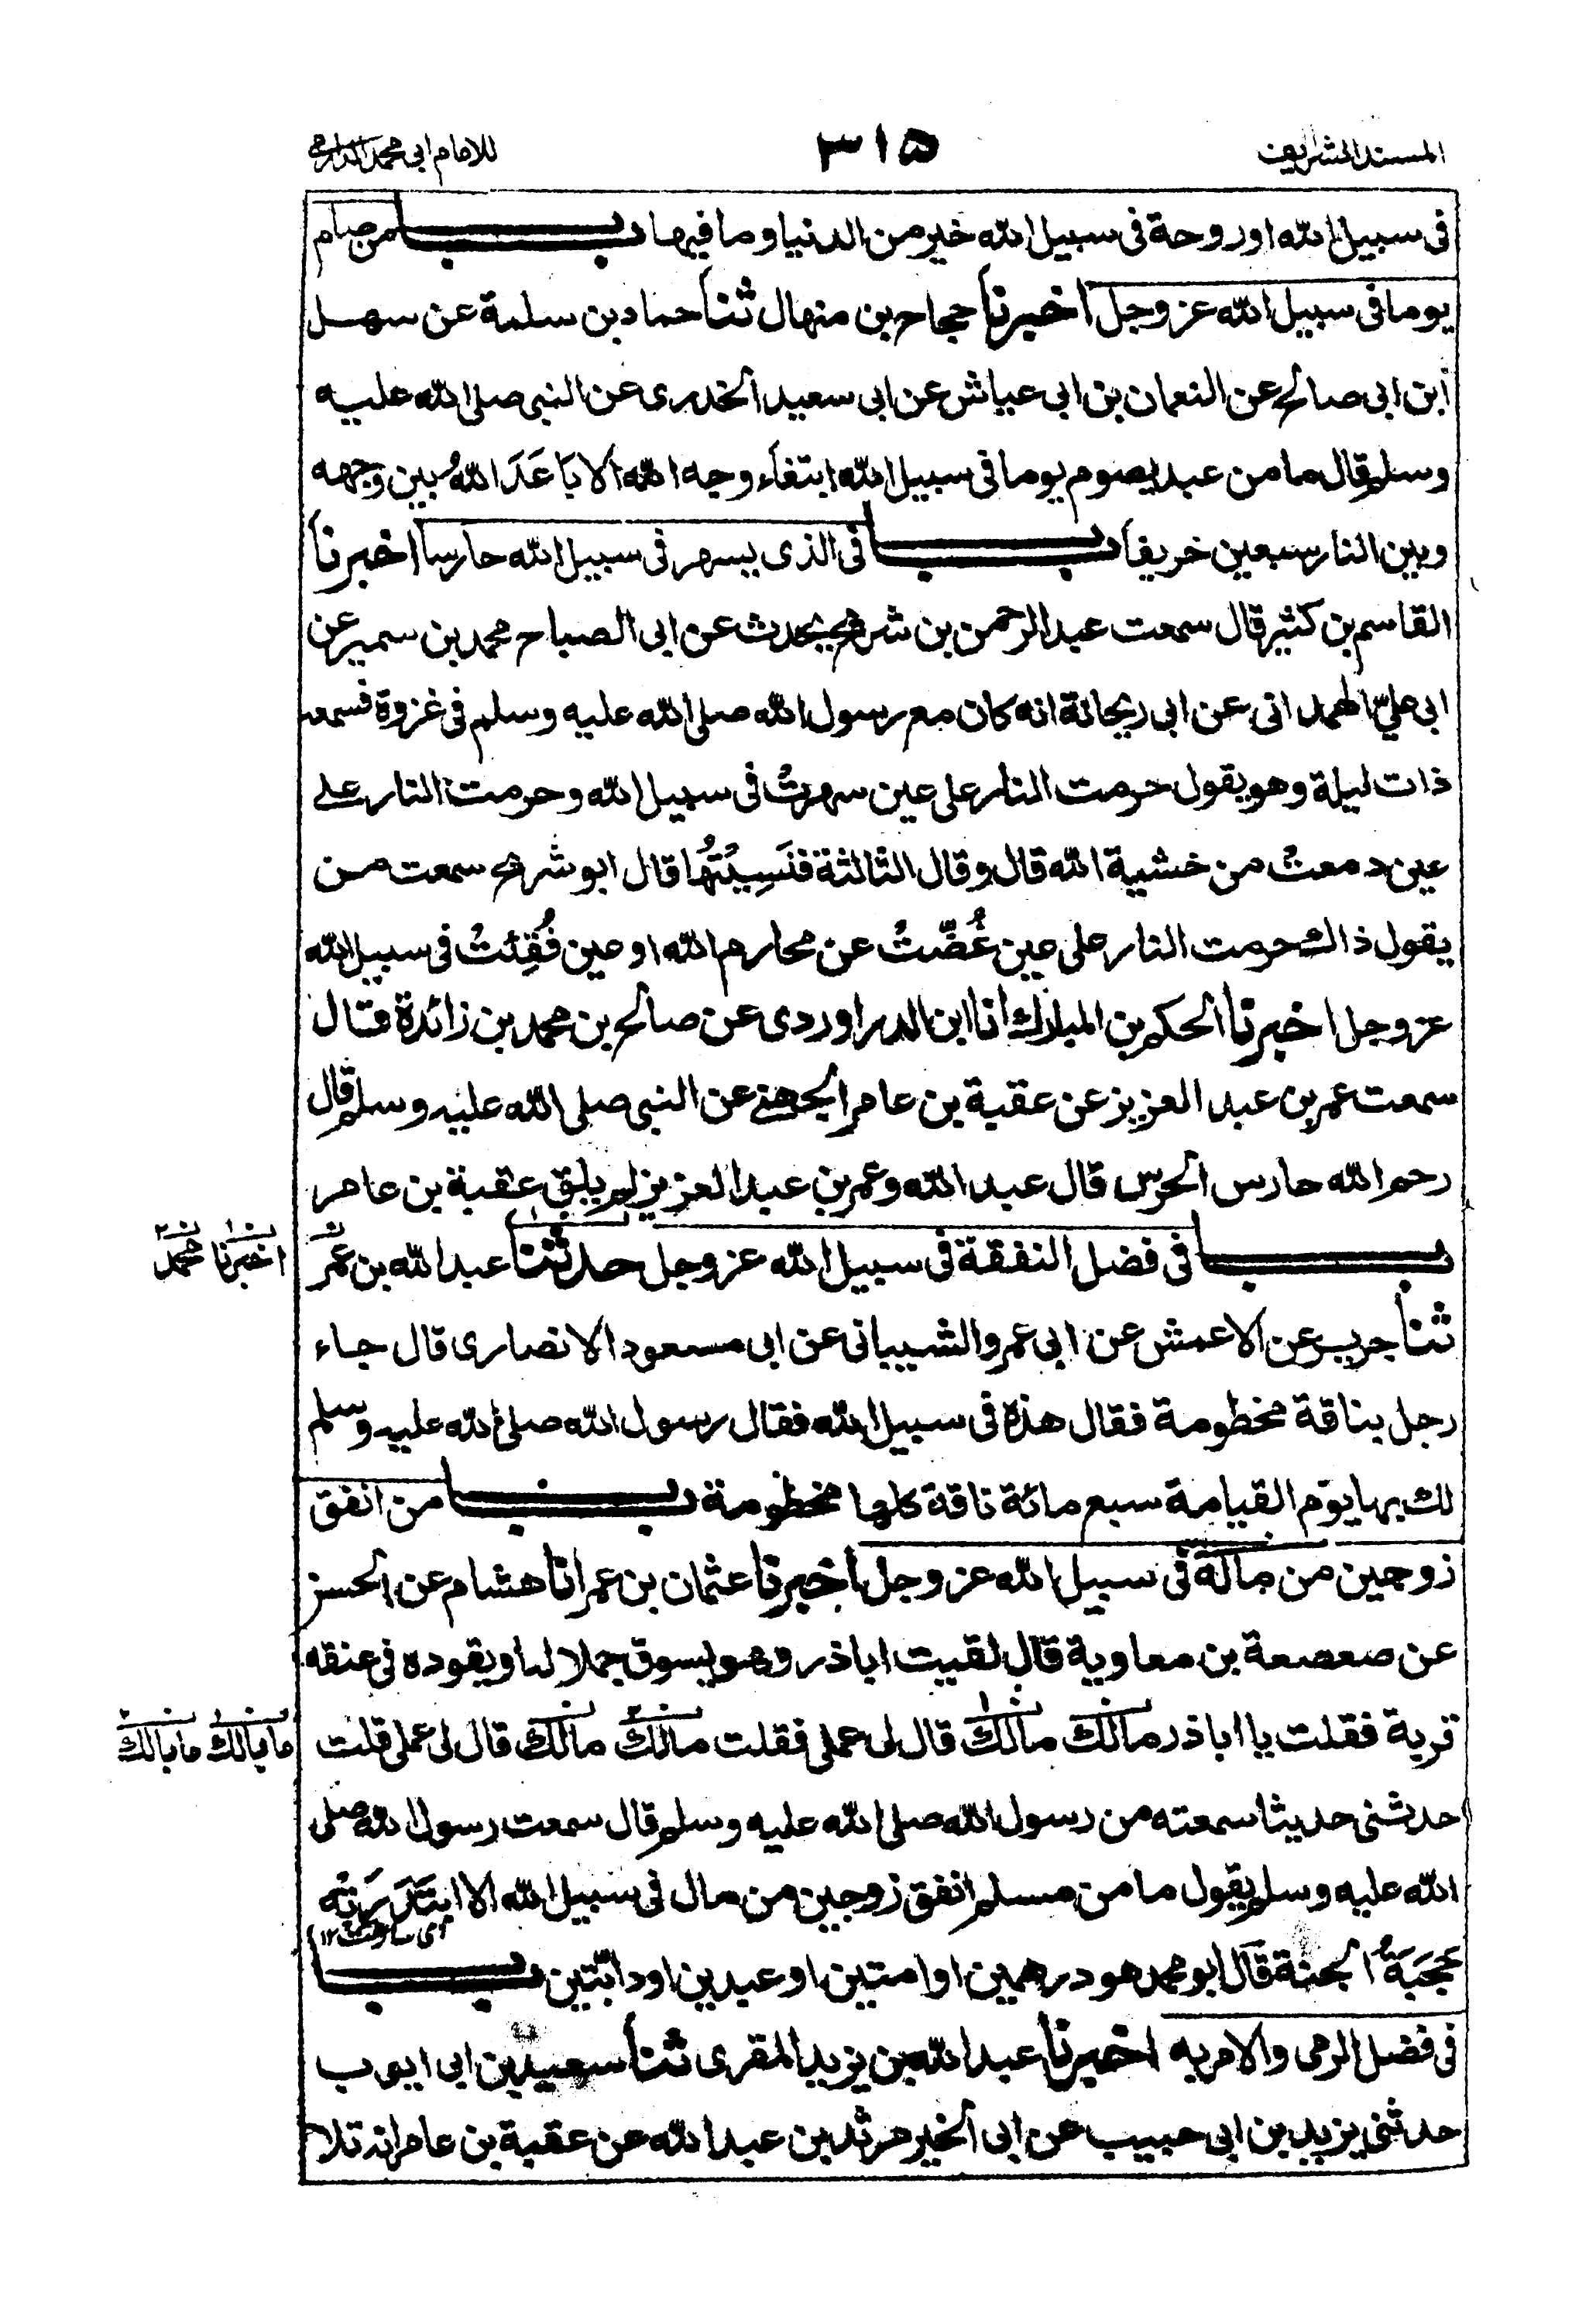 المسند الشريف ٣١٥ للامام ابى محمد الدارمى
فى سبيل الله او روحة فى سبيل الله خير من الدنيا وما فيها باب من صام
يوما فى سبيل الله عز وجل اخبرنا حجاج بن منهال ثنا حماد بن سلمة عن سهل
ابن ابى صالح عن النعمان بن ابى عياش عن ابى سعيد الخدرى عن النبى صلى الله عليه
وسلم قال ما من عبد يصوم يوما فى سبيل الله ابتغاء وجه الله الا بَاعَدَ اللهُ بين وجهه
وبين النار سبعين خريفا باب فى الذى يسهر فى سبيل الله حارسا اخبرنا
القاسم بن كثير قال سمعت عبد الرحمن بن شريح يحدث عن ابى الصباح محمد بن سمير عن
ابى عليّ الهمدانى عن ابى ريحانة انه كان مع رسول الله صلى الله عليه وسلم فى غزوة فسمعه
ذات ليلة وهو يقول حرمت النار على عين سهرتْ فى سبيل الله وحرمت النار على
عين دمعتْ من خشية الله قال وقال الثالثة فنَسِيْتُهَا قال ابو شريح سمعت من
يقول ذاك حرمت النار على عين غُضَّتْ عن محارم الله او عين فُقِئتْ فى سبيل الله
عز وجل اخبرنا الحكم بن المبارك انا ابن الدراوردى عن صالح بن محمد بن زائدة قال
سمعت عمر بن عبد العزيز عن عقبة بن عامر الجهنى عن النبى صلى الله عليه وسلم قال
رحم الله حارس الحرس قال عبد الله وعمر بن عبد العزيز لم يلق عقبة بن عامر
باب فى فضل النفقة فى سبيل الله عز وجل حدثنا عبد الله بن عمر
اخبرنا محمد
ثنا جرير عن الاعمش عن ابى عمرو الشيبانى عن ابى مسعود الانصارى قال جاء
رجل بناقة مخطومة فقال هذه فى سبيل الله فقال رسول الله صلى الله عليه وسلم
لك بها يوم القيامة سبع مائة ناقة كلها مخطومة باب من انفق
زوجين من ماله فى سبيل الله عز وجل اخبرنا عثمان بن عمر انا هشام عن الحسن
عن صعصعة بن معاوية قال لقيت اباذر وهو يسوق جملا له او يقوده فى عنقه
قربة فقلت يا اباذر مالك مالك قال لى عملى فقلت مالك مالك قال لى عملى قلت
ما بالك ما بالك
حدثنى حديثا سمعته من رسول الله صلى الله عليه وسلم قال سمعت رسول الله صلى
الله عليه وسلم يقول ما من مسلم انفق زوجين من مال فى سبيل الله الا ابتَدَرَتْه
اى سارعت ١٢
حَجَبَةُ الجنة قال ابو محمد هو درهمين او امتين او عبدين او دابّتين باب
فى فضل الرمى والامر به اخبرنا عبد الله بن يزيد المقرى ثنا سعيد بن ابى ايوب
حدثنى يزيد بن ابى حبيب عن ابى الخير مرثد بن عبد الله عن عقبة بن عامر انه تلا